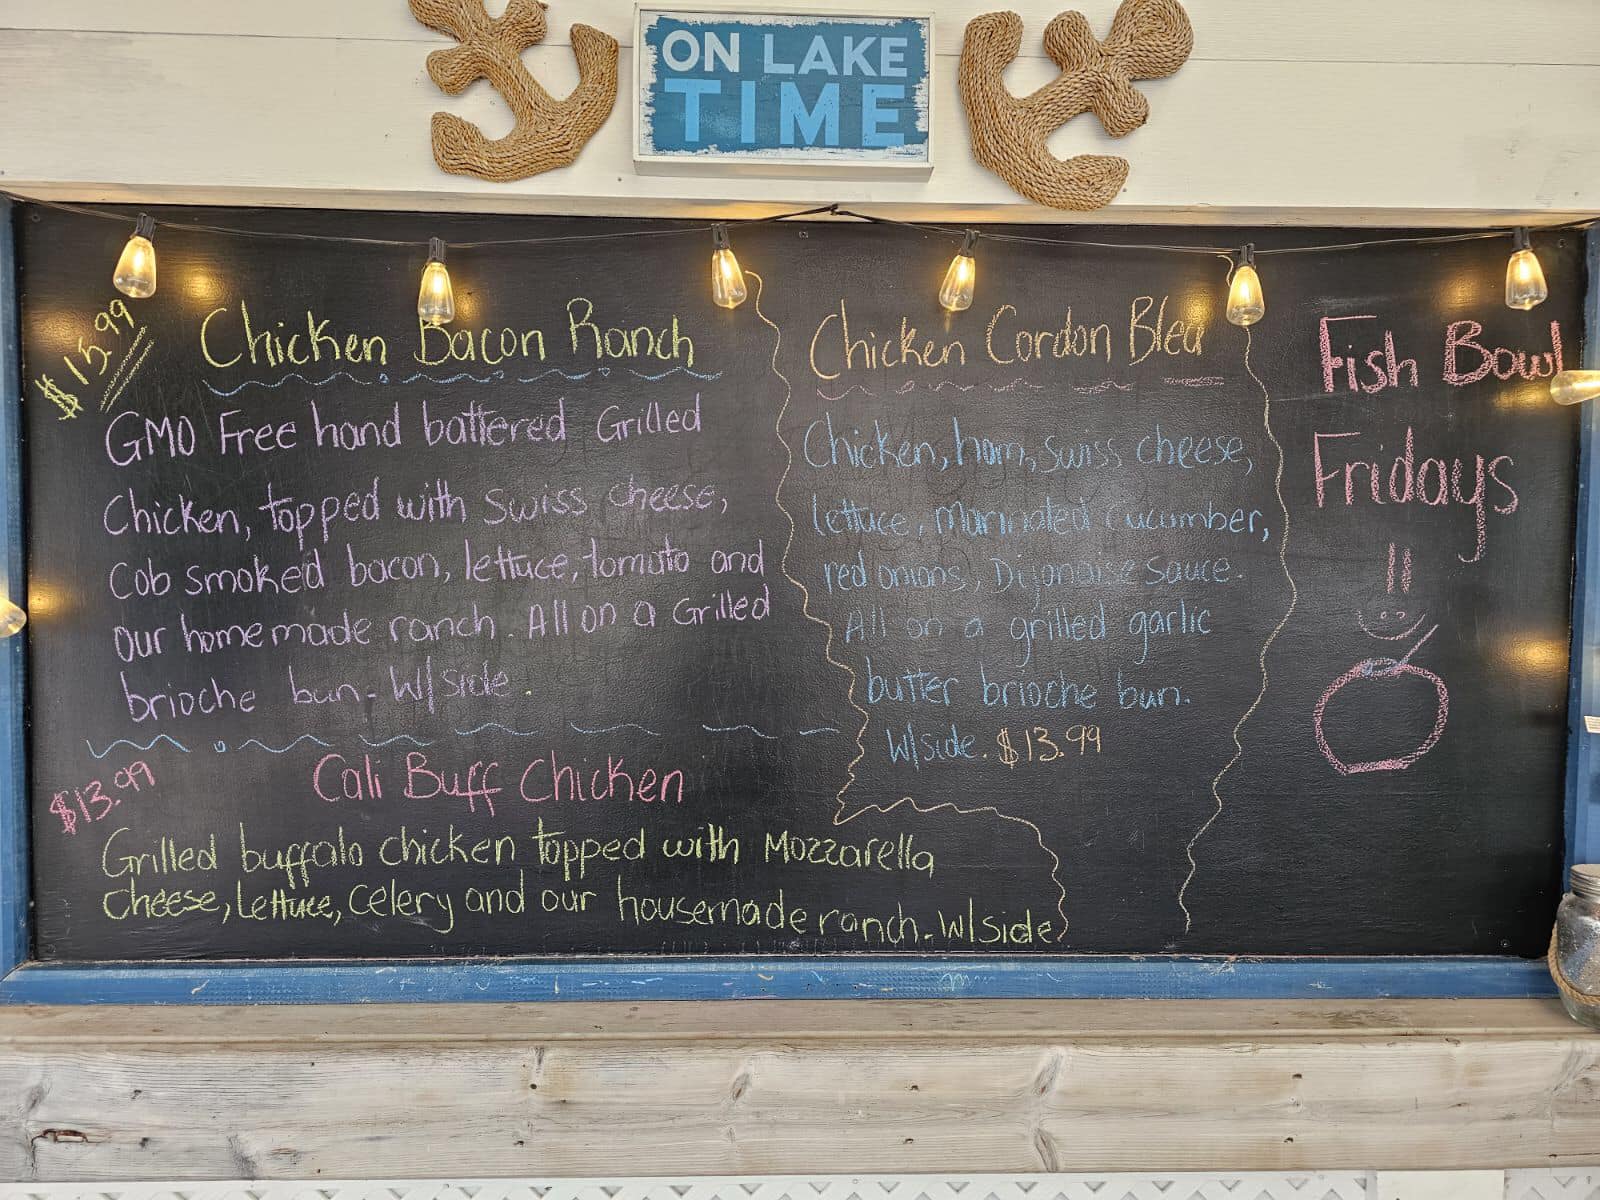 ON LAKE
TIME
$15.99
Chicken Bacon Ranch
GMO Free hand battered Grilled
Chicken, topped with swiss cheese,
Cob smoked bacon, lettuce, tomato and
our homemade ranch. All on a Grilled
brioche bun. W/side.
$13.99
Cali Buff Chicken
Grilled buffalo chicken topped with Mozzarella
cheese, Lettuce, Celery and our housemade ranch. W/side
Chicken Cordon Bleu
Chicken, ham, swiss cheese,
lettuce, Marinated cucumber,
red onions, Dijonaise sauce.
All on a grilled garlic
butter brioche bun.
W/side. $13.99
Fish Bowl
Fridays